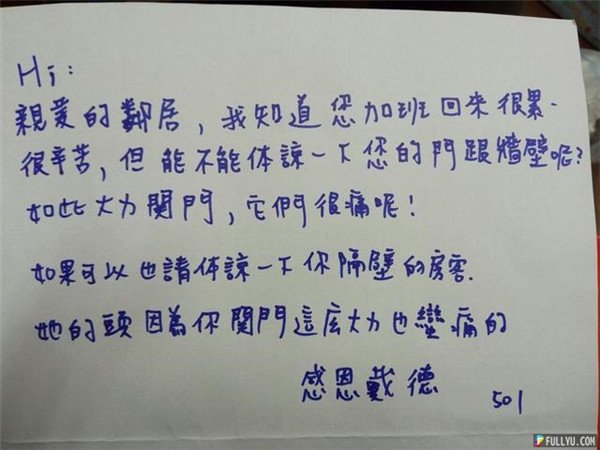 Hi:
親愛的鄰居，我知道您加班回來很累、
很辛苦，但能不能体諒一下您的門跟牆壁呢?
如此大力関門，它們很痛呢!
如果可以也請体諒一下你隔壁的房客.
她的頭因為你関門這麼大力也蠻痛的
感恩戴德
501
FULLYU.COM